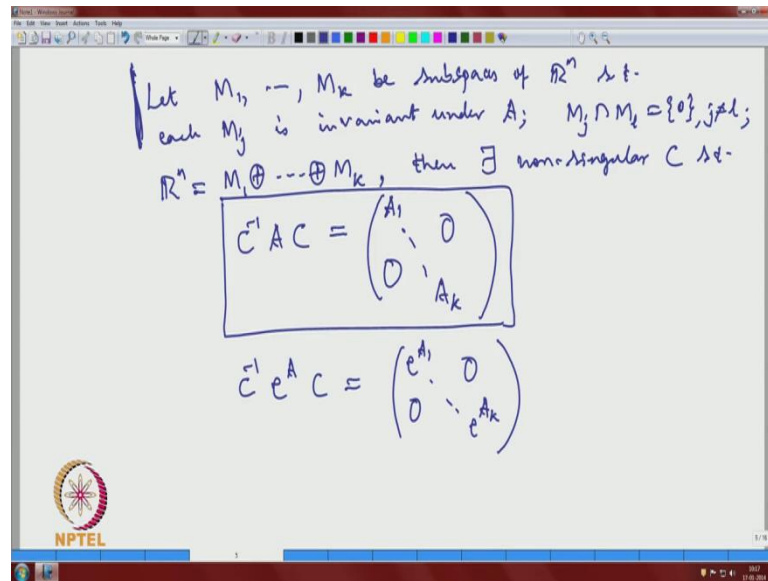 Note1 - Windows Journal
File Edit View Insert Actions Tools Help
Whole Page
Let M₁, ---, Mₖ be subspaces of ℝⁿ s.t.
each Mⱼ is invariant under A; Mⱼ ∩ Mₗ = {0}, j≠l;
ℝⁿ = M₁ ⊕ --- ⊕ Mₖ, then ∃ non-singular C s.t.
C⁻¹ A C = ( A₁ ⋱ 0
0 Aₖ )
C⁻¹ e^A C = ( e^A₁ ⋱ 0
0 e^Aₖ )
NPTEL
5
10:17